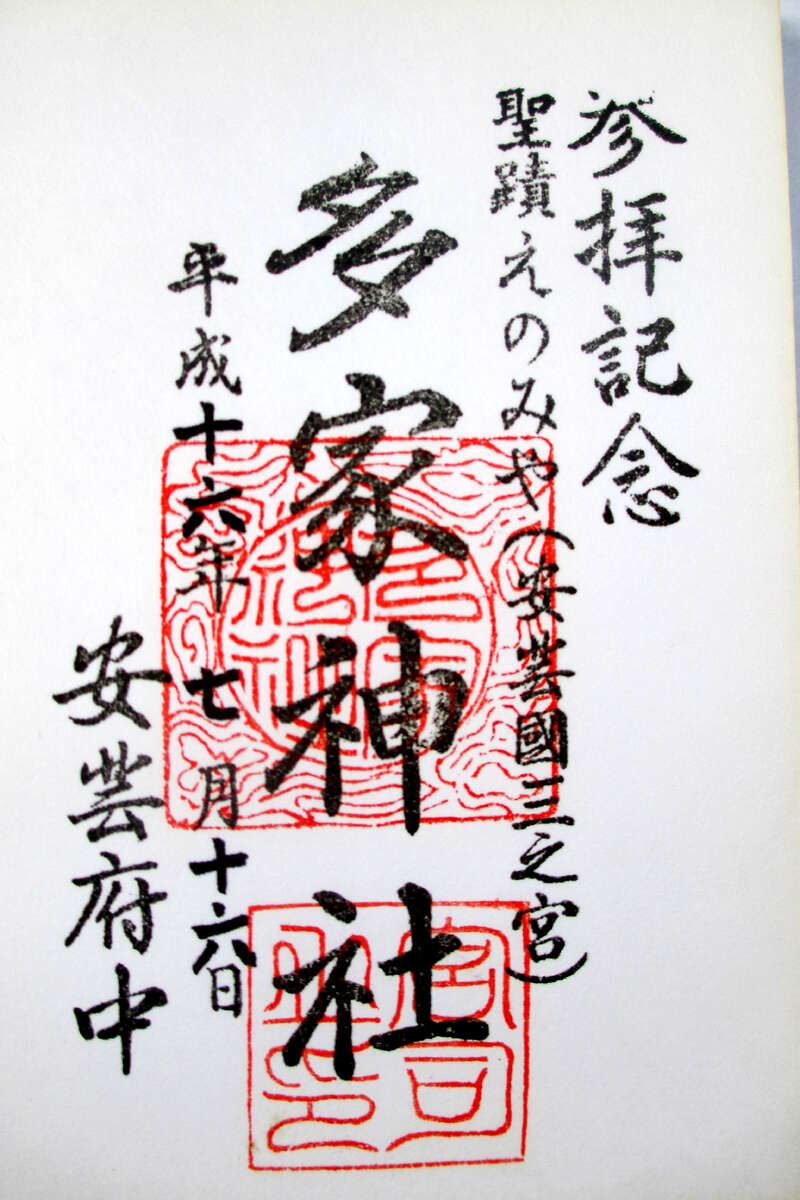 参拝記念
聖蹟えのみや(安芸國三之宮)
多家神社
平成十六年七月十六日
安芸府中